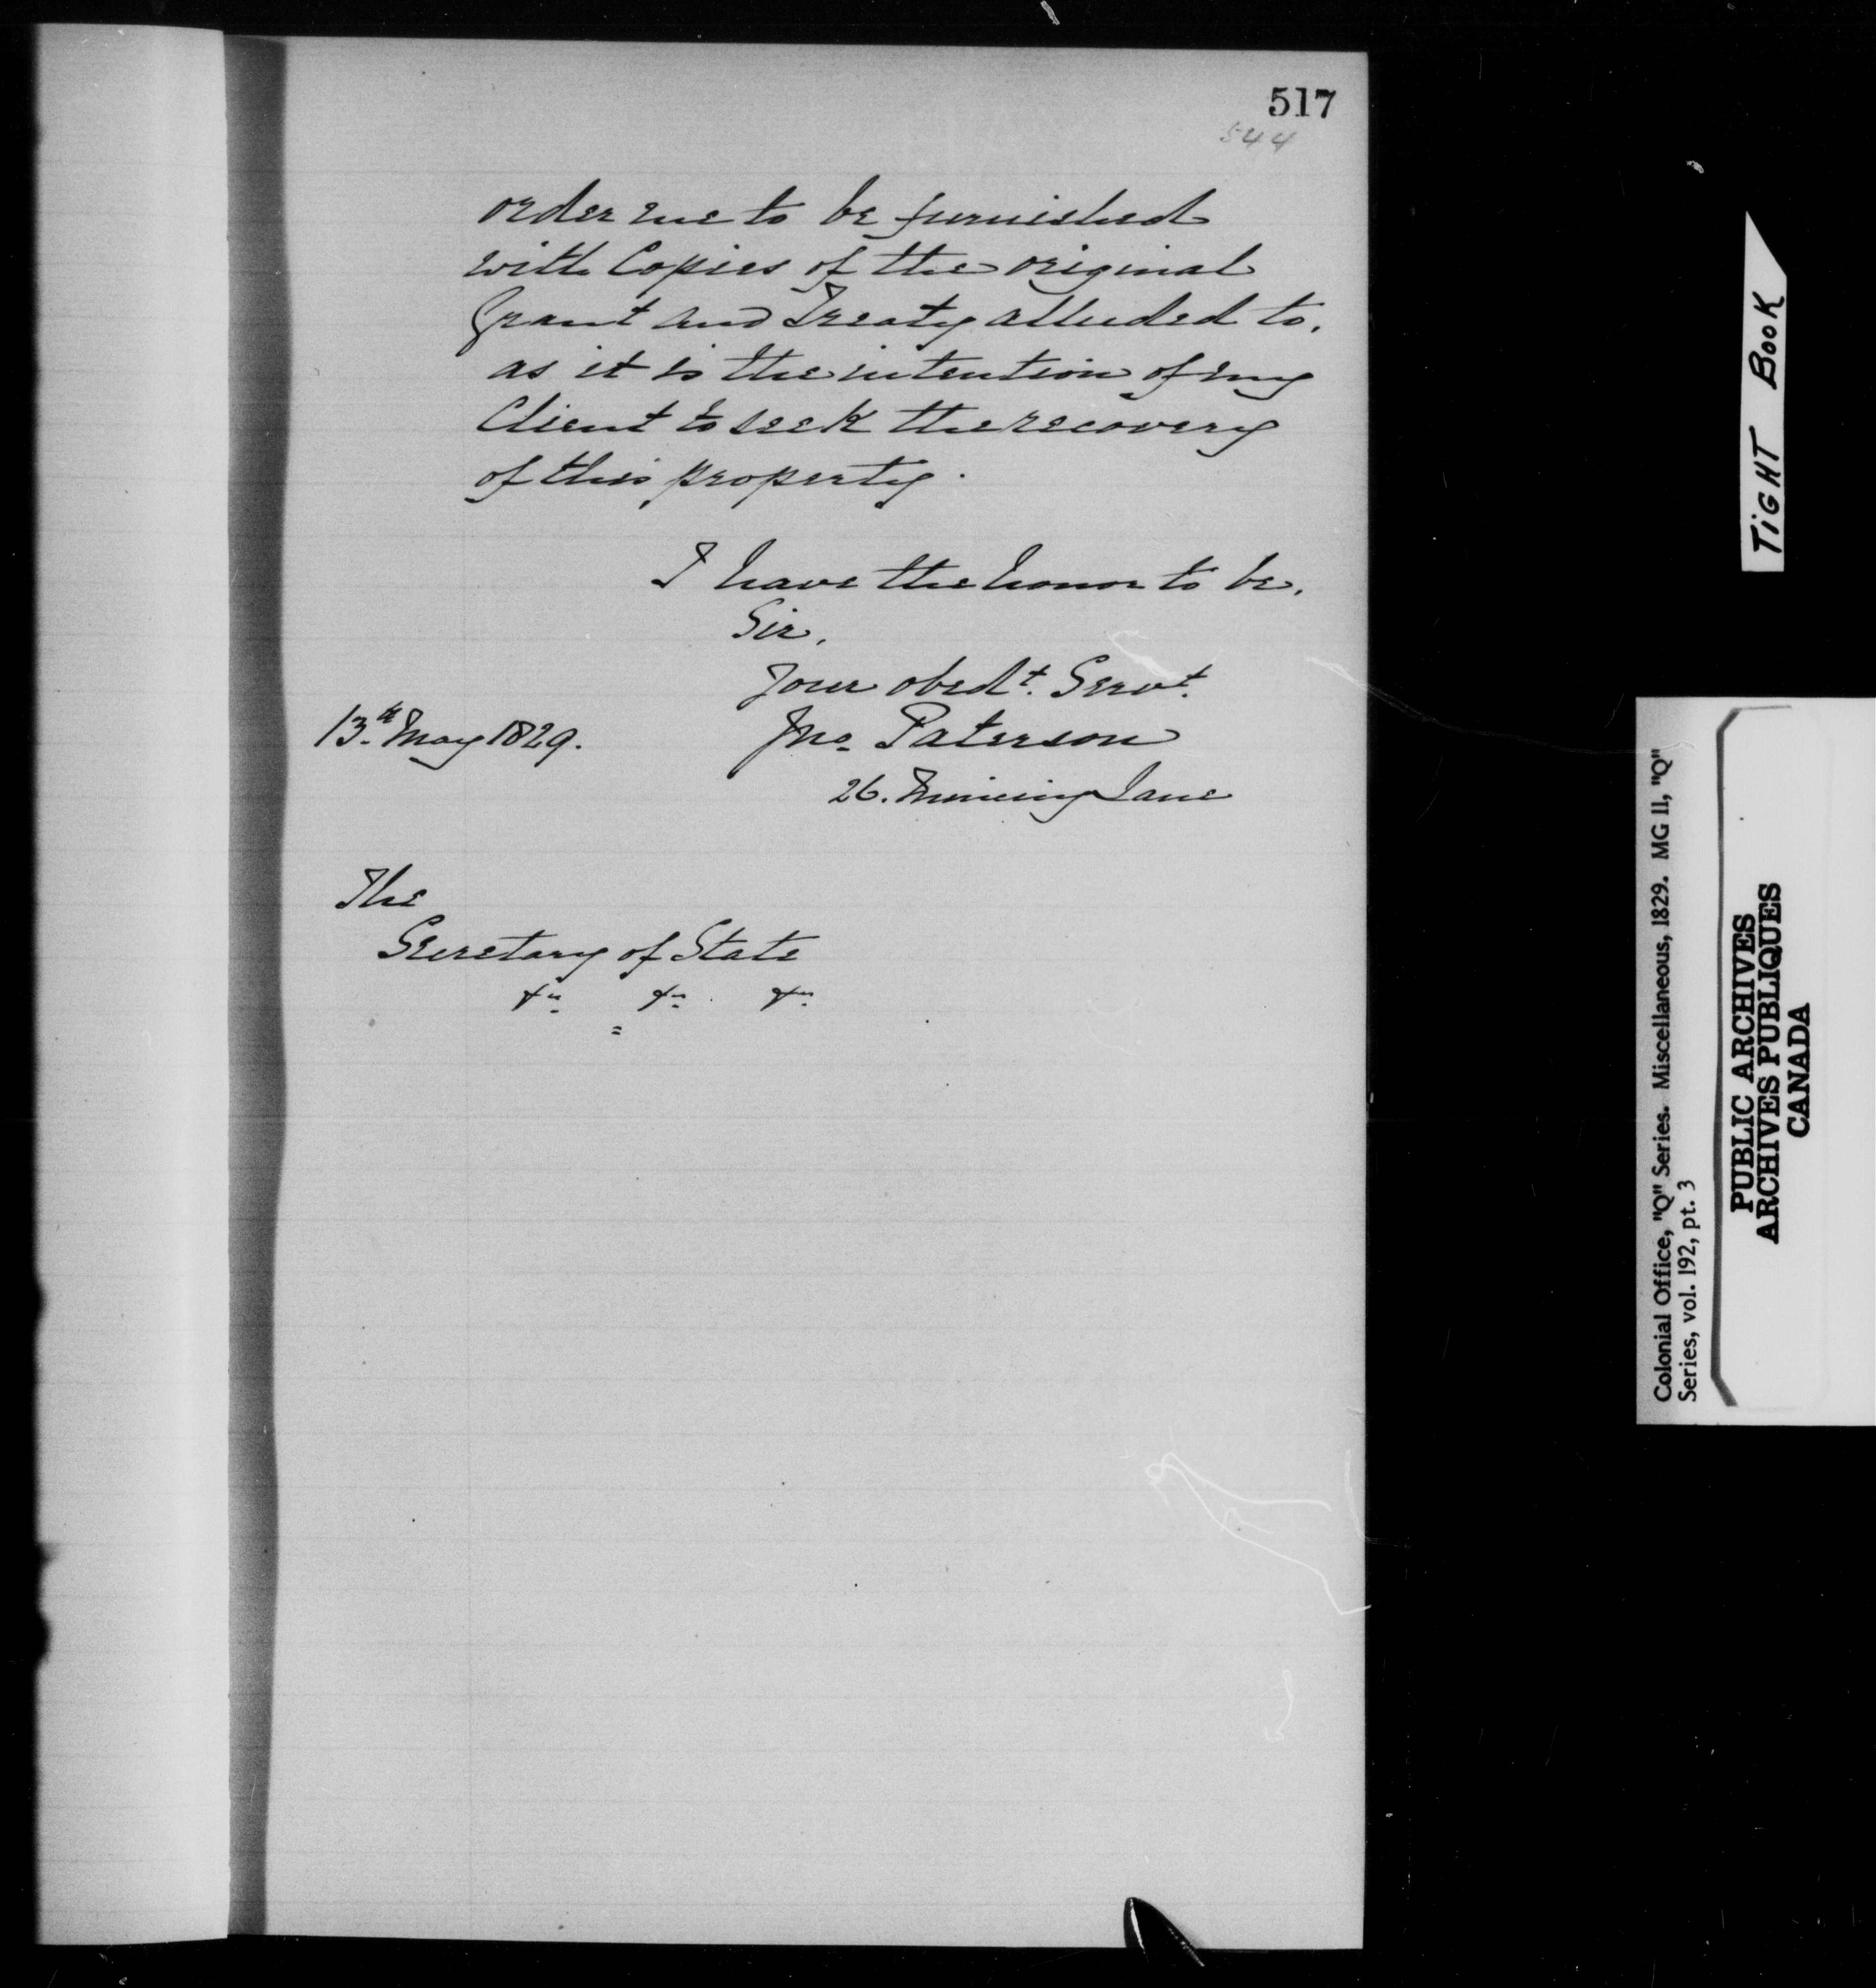 517
544
order me to be furnished
with Copies of the original
Grant and Treaty alluded to,
as it is the intention of my
Client to seek the recovery
of this property.
I have the honor to be,
Sir,
Your obedt. Servt.
13th May 1829.
Jno. Paterson
26. Mincing Lane
The
Secretary of State
&c. &c. &c.
TIGHT BOOK
Colonial Office, "Q" Series. Miscellaneous, 1829. MG 11, "Q"
Series, vol. 192, pt. 3
PUBLIC ARCHIVES
ARCHIVES PUBLIQUES
CANADA